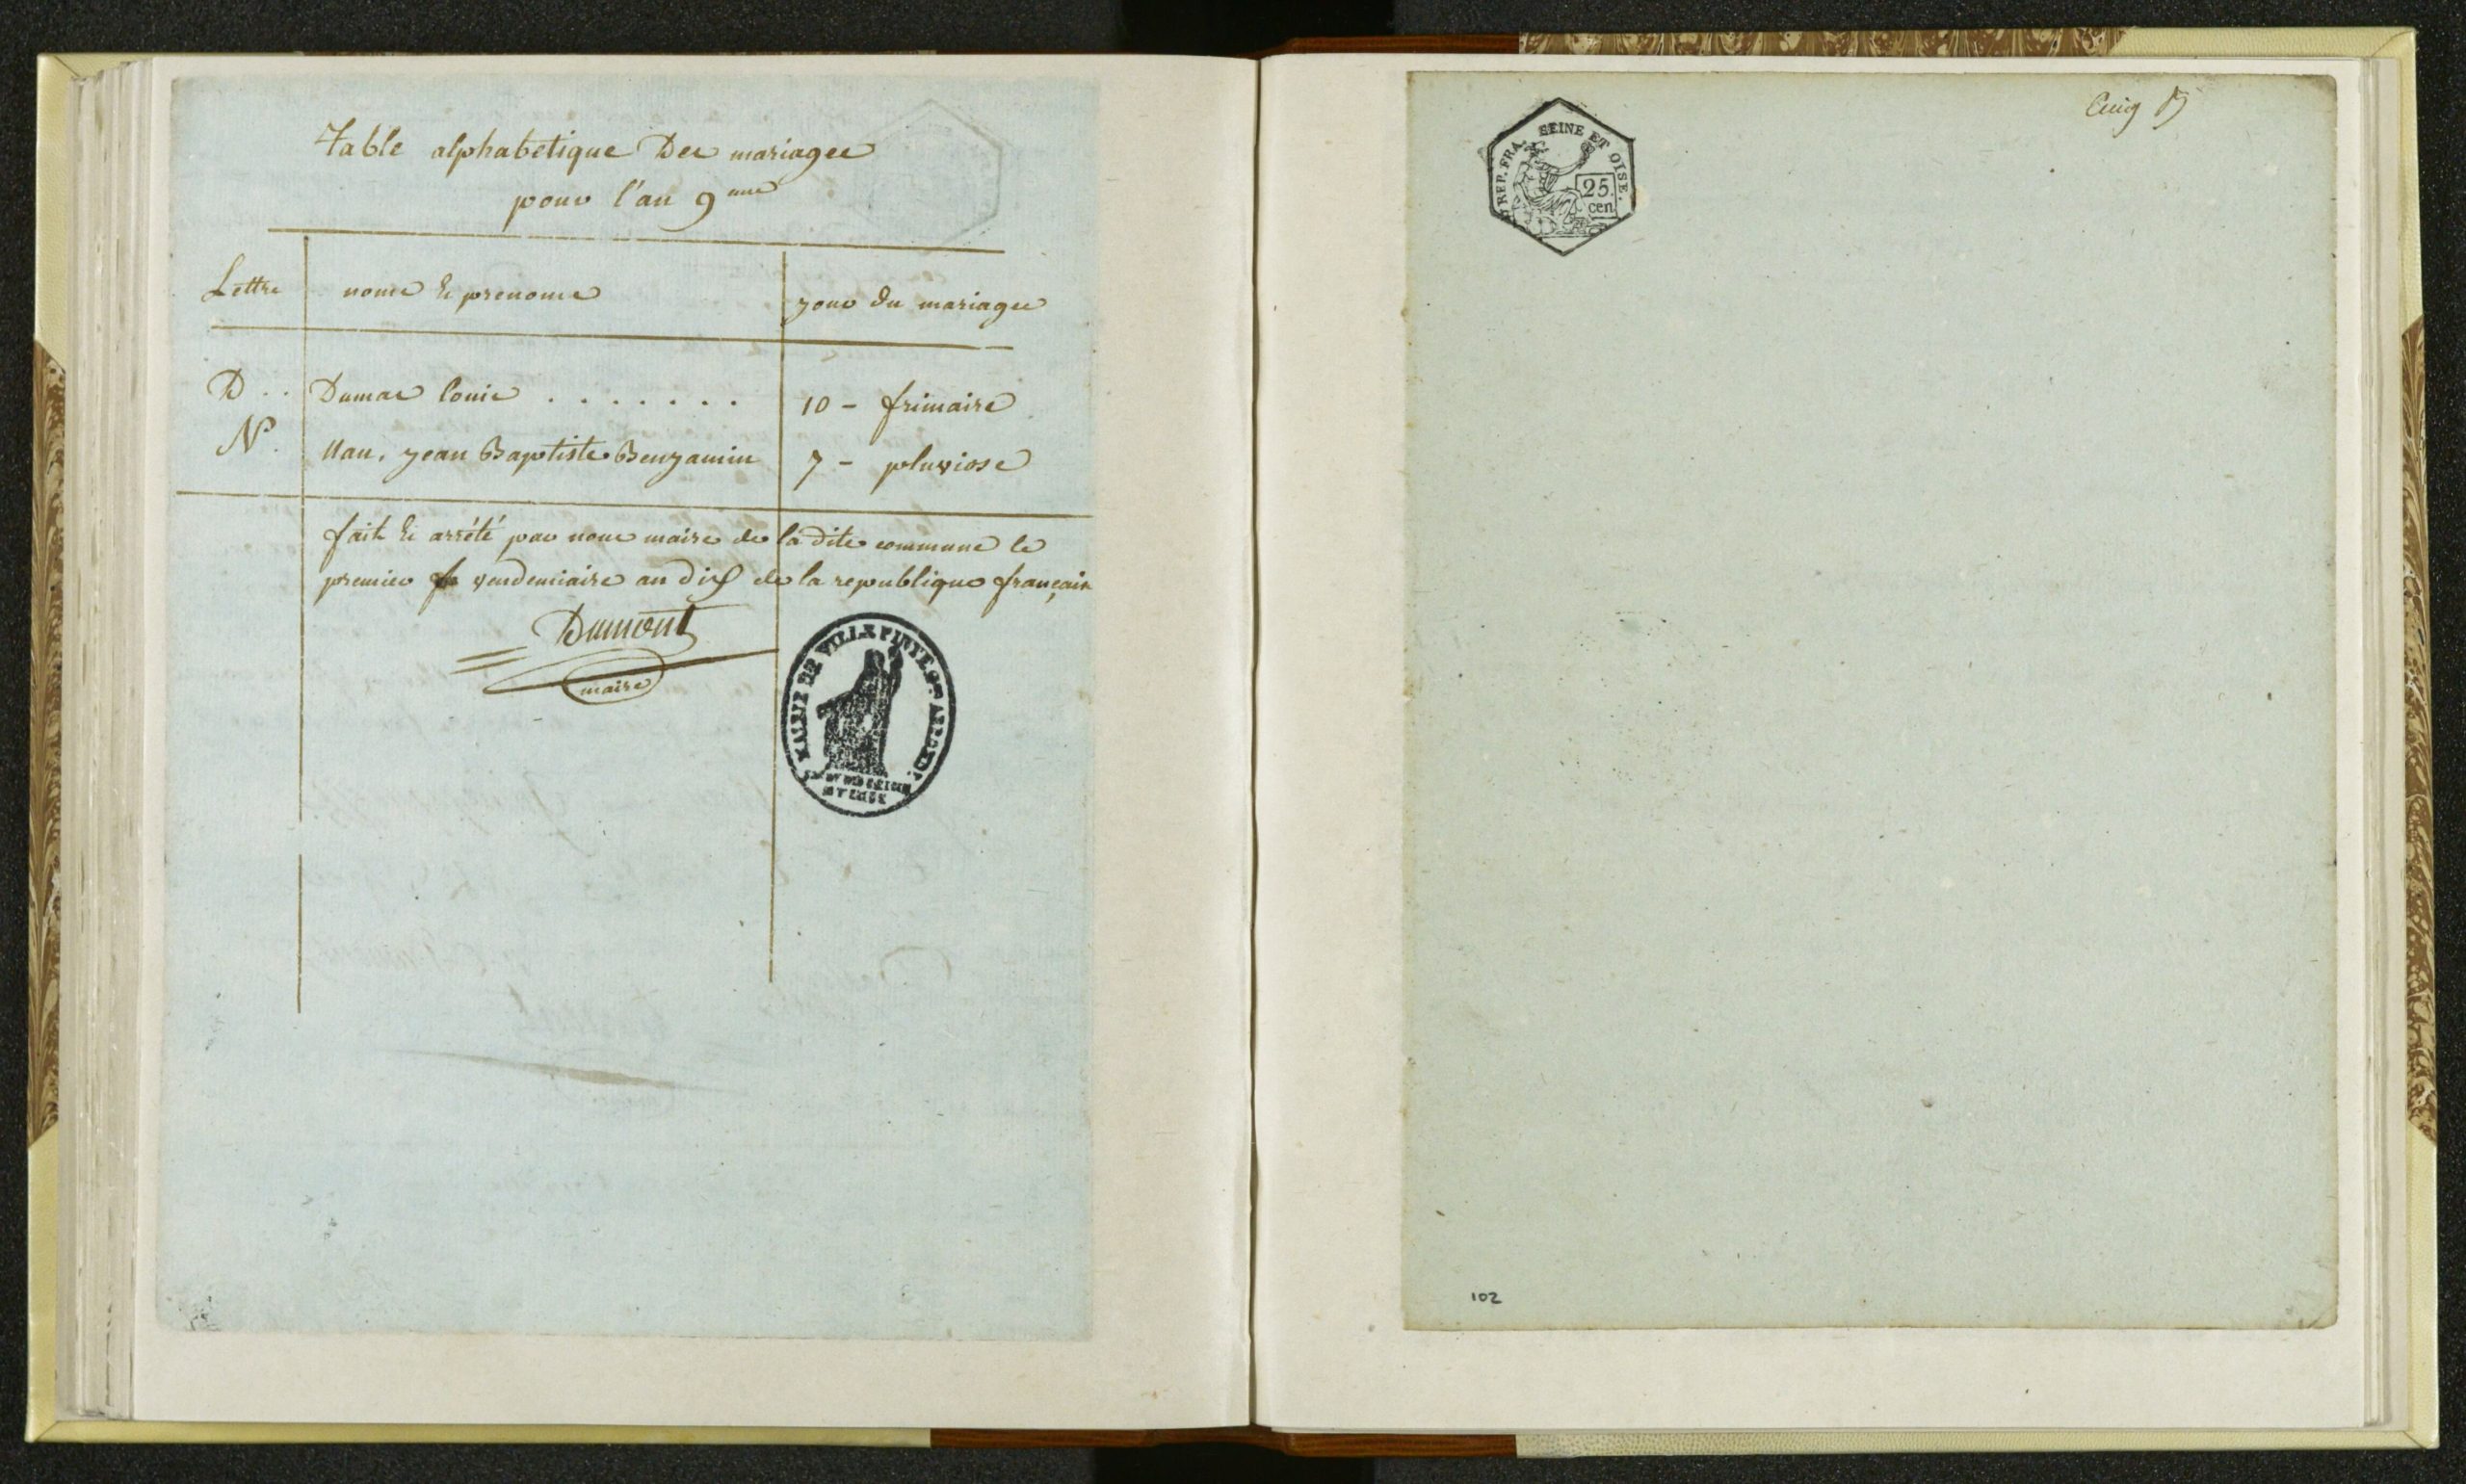 Table alphabetique Des mariages
pour l'an 9eme
Lettre
noms & prenoms
jour du mariages
D . .
Dumas louis . . . . . . .
10 - frimaire
N.
Nau. jean Baptiste Benjamin
7 - pluviose
fait & arrété par nous maire de la dite commune le
premier vendemiaire an dix de la republique français
Dumont
maire
MAIRIE DE VILLEPINTE
REP. FRA. SEINE ET OISE.
25.
cen.
102